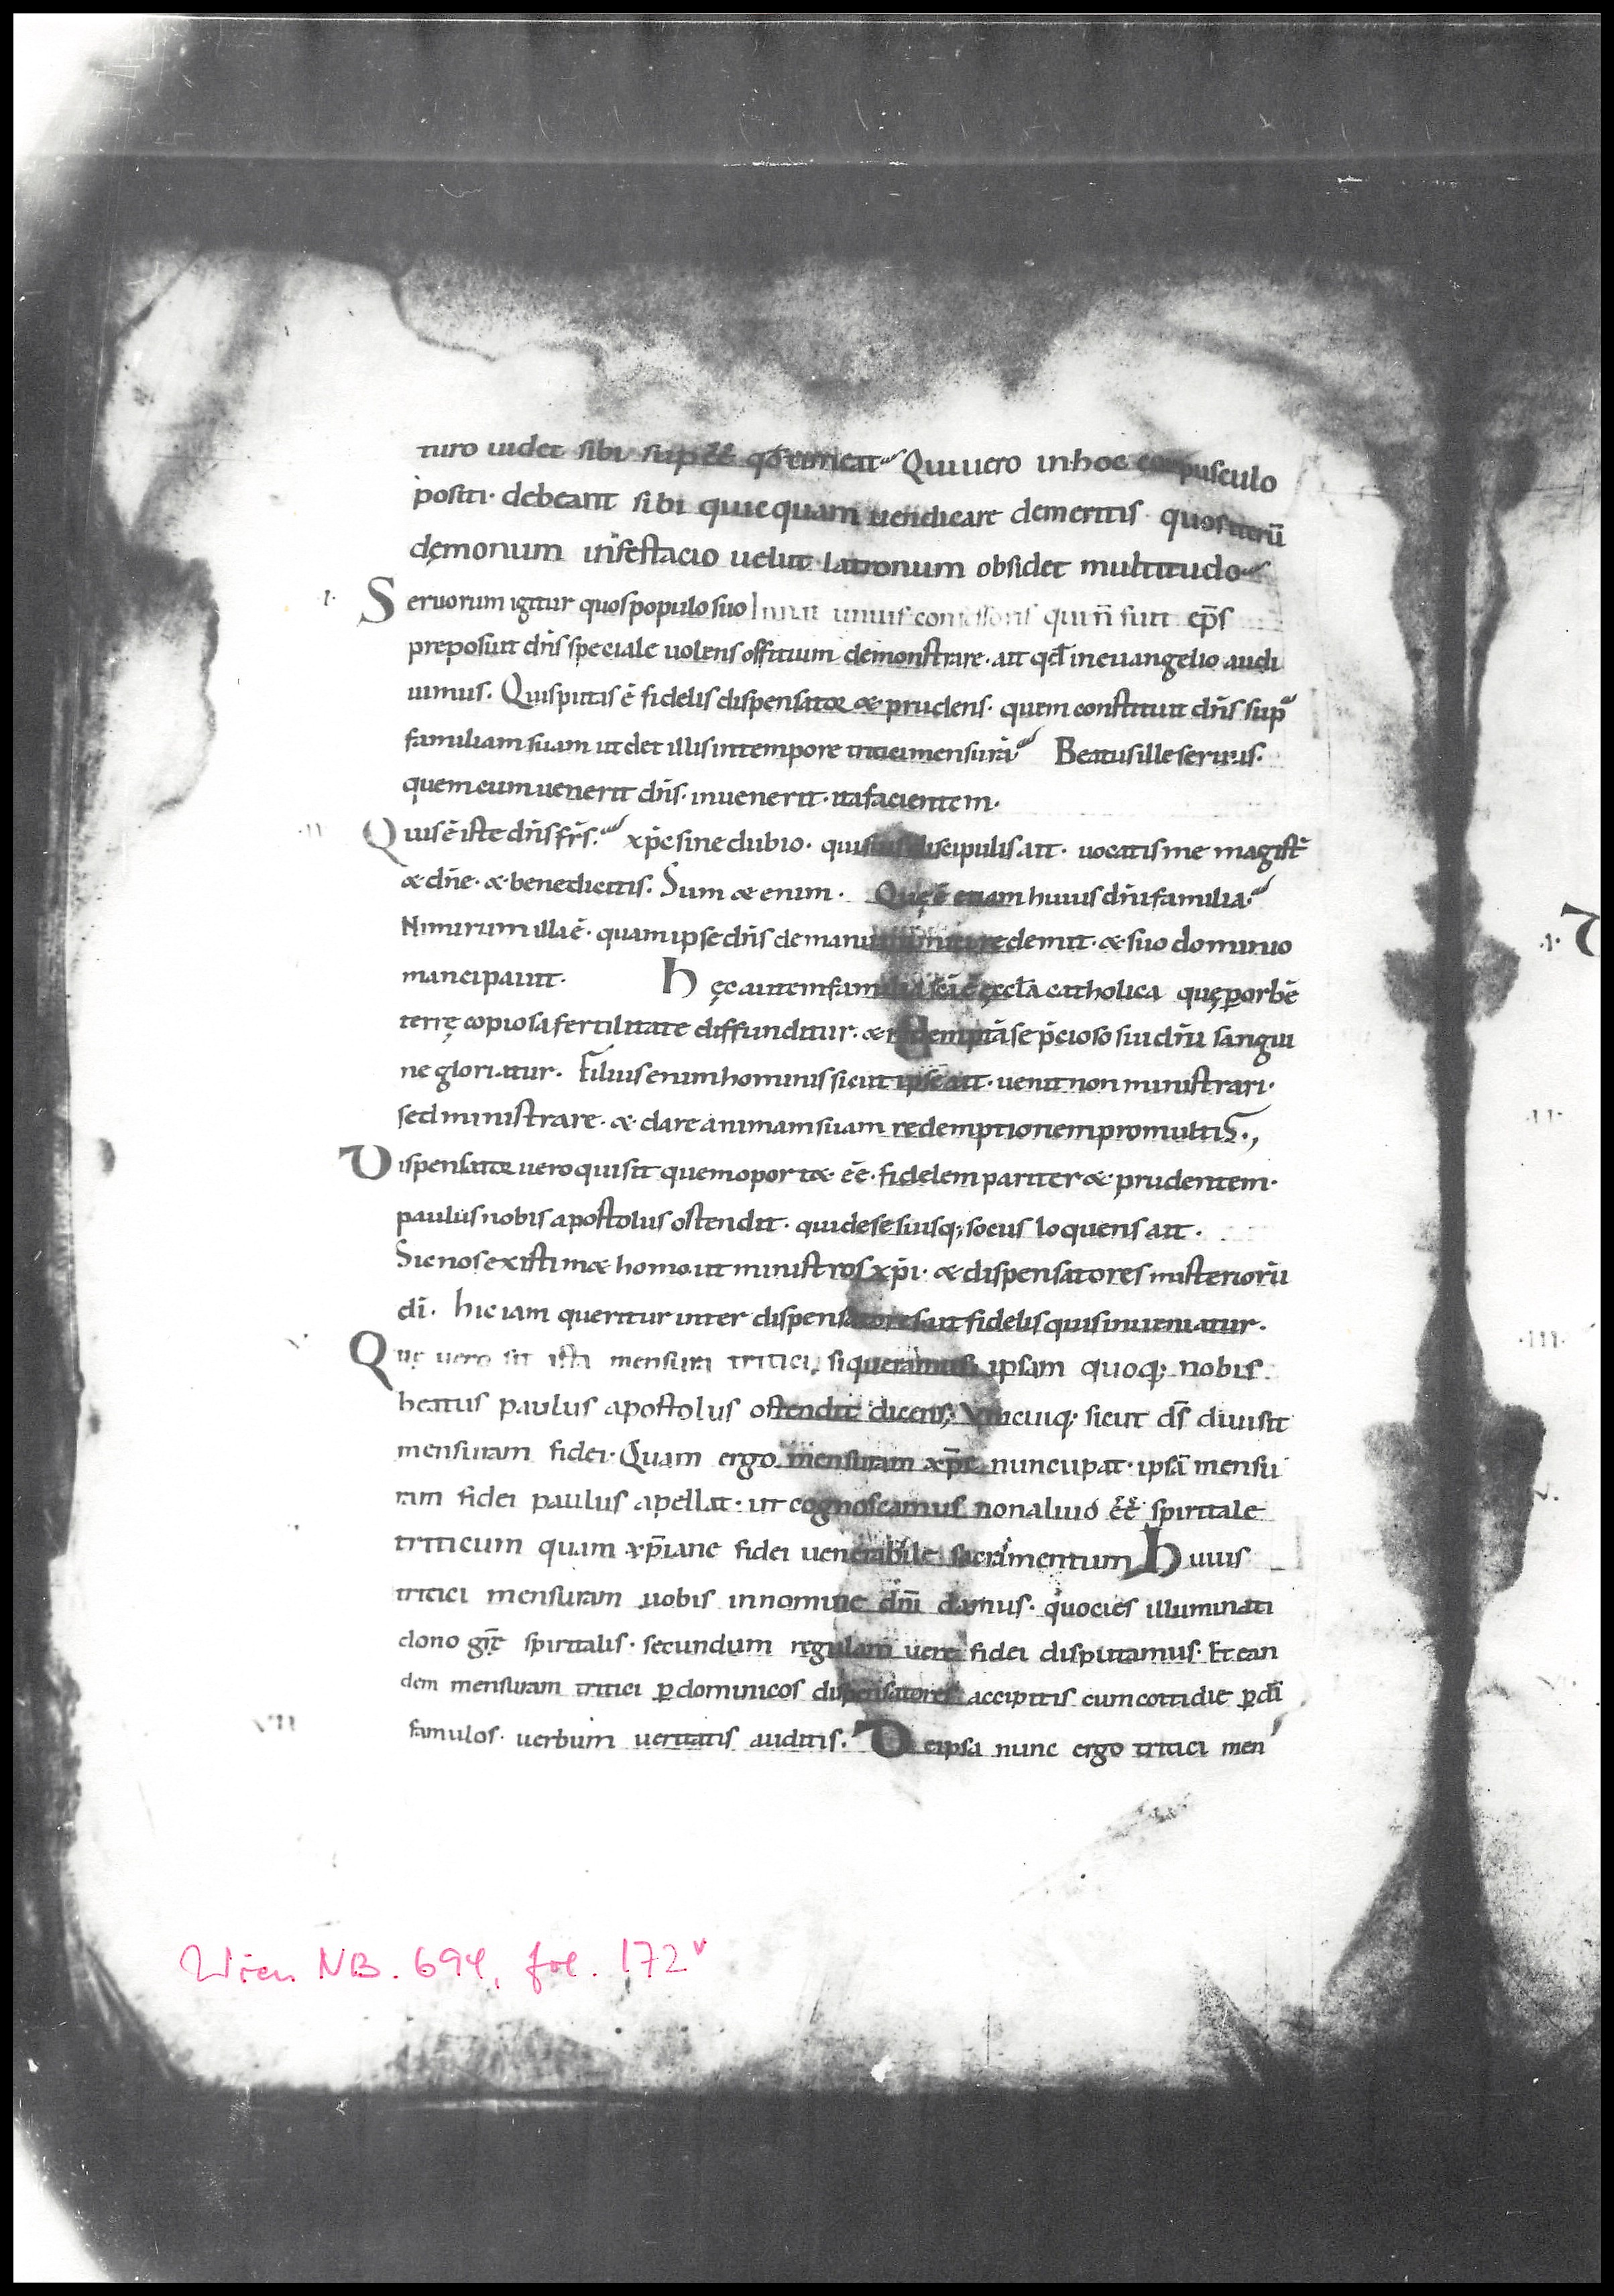 turo uidet sibi sup eē qđ timeat Qui uero in hoc corpusculo
positi· debeant sibi quicquam uendicare demeritis quos iterū
dęmonum infestacio uelut latronum obsidet multitudo
I· Seruorum igitur quos populo suo In nat unius confessoris qui ñ sint ep̄s
preposuit dn̄s speciale uolens offitium demonstrare· ait qđ in euangelio audi
uimus· Quis putas ē fidelis dispensator & prudens· quem constituit dn̄s sup
familiam suam ut det illis in tempore tritici mensurā Beatus ille seruus·
quem cum uenerit dn̄s· inuenerit· ita facientem·
II Quis ē iste dn̄s fr̄s· xp̄c sine dubio· qui suis discipulis ait· uocatis me magist̄
& dn̄e· & bene dicitis· Sum & enim· Quę ē etiam huius dn̄i familia·
Nimirum illa ē· quam ipse dn̄s de manu inimici redemit· & suo dominio
mancipauit· Hęc autem familia sc̄a ē ęccl̄a catholica quę p orbē
terrę copiosa fertilitate diffunditur· & redemptā se p̄cioso sui dn̄i sangui
ne gloriatur· Filius enim hominis sicut ipse ait· uenit non ministrari·
sed ministrare· & dare animam suam redemptionem pro multis·,
Dispensator uero qui sit quem oport&· eē· fidelem pariter & prudentem·
paulus nobis apostolus ostendit· qui de se suisq; sociis loquens ait·
Sic nos existim& homo ut ministros xp̄i· & dispensatores misteriorū
dī· hic iam queritur inter dispensatores ut fidelis quis inueniatur·
Quę uero sit ista mensura tritici, si queramus ipsam quoq; nobis
beatus paulus apostolus ostendit dicens; Vnicuiq; sicut ds̄ diuisit
mensuram fidei· Quam ergo mensuram xp̄c nuncupat· ipsā mensu
ram fidei paulus apellat· ut cognoscamus non aliud eē spiritale
triticum quam xp̄iane fidei uenerabile sacramentum Huius
tritici mensuram uobis in nomine dn̄i damus· quocies illuminati
dono gr̄e spiritalis· secundum regulam uere fidei disputamus· Et ean
dem mensuram tritici p dominicos dispensatores accipitis cum cottidie p dī
VII famulos· uerbum ueritatis auditis· De ipsa nunc ergo tritici men
·I·
·II·
·III·
V·
Wien NB. 694, fol. 172v